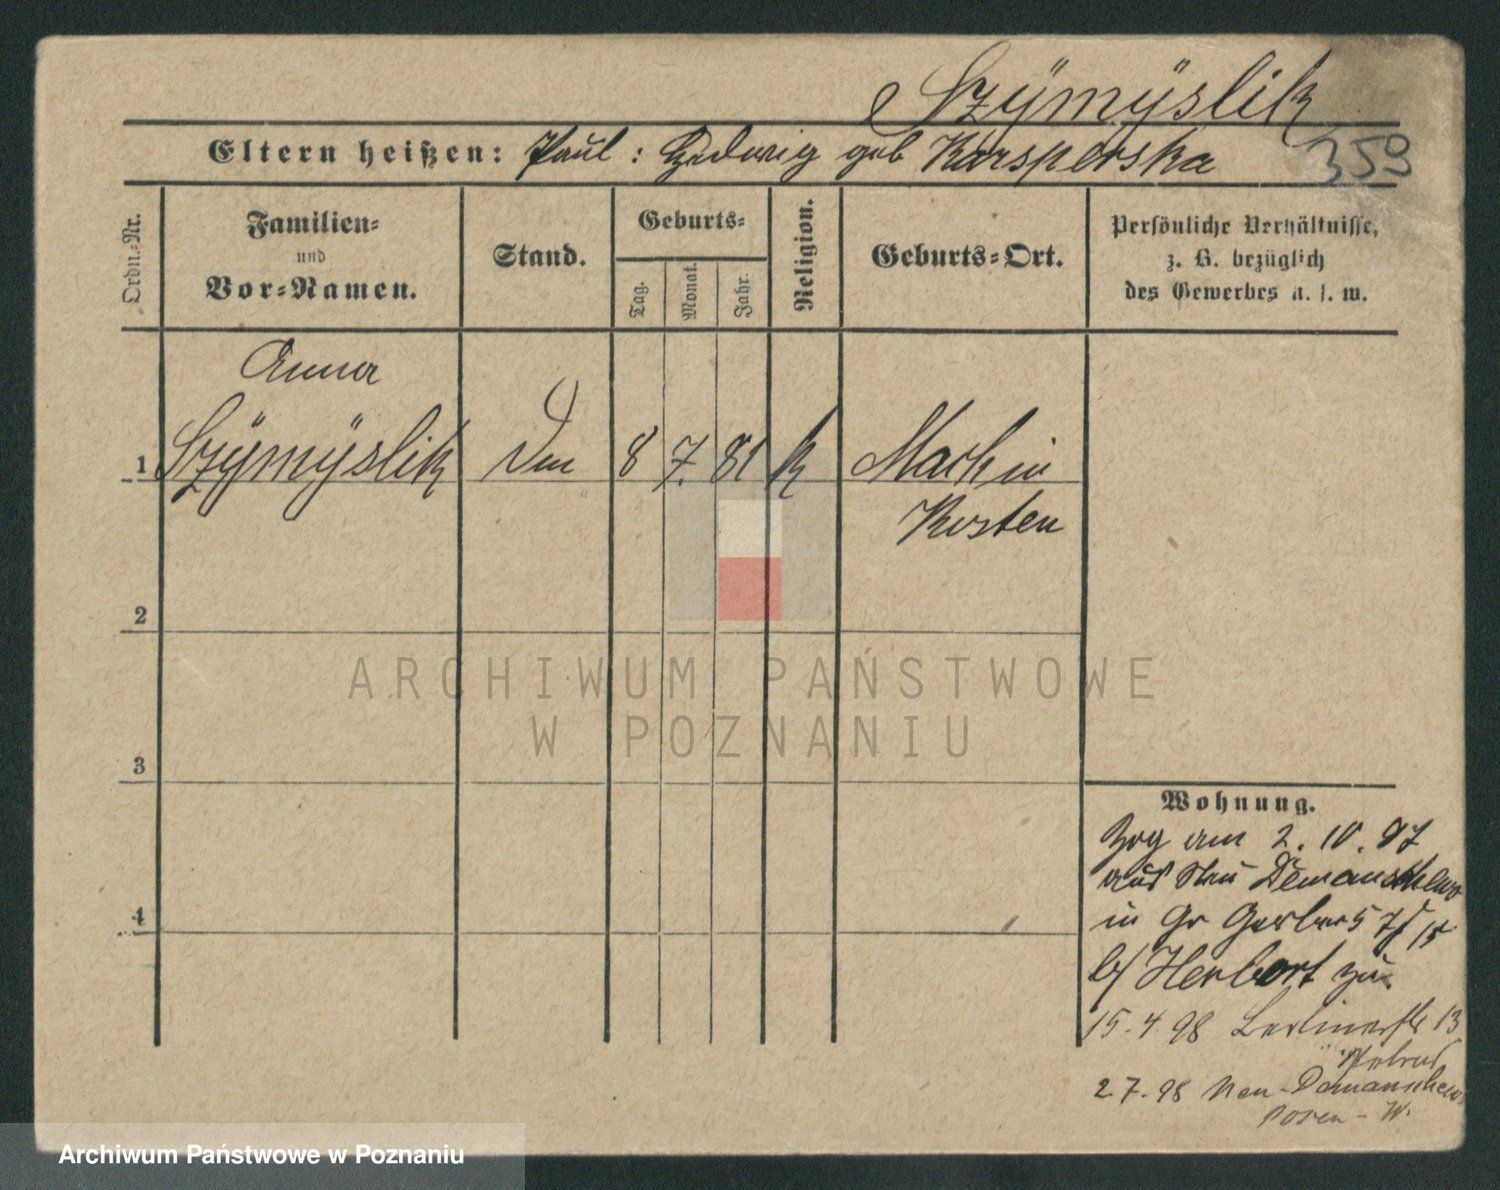 Szÿmÿslik
Eltern heißen: Paul : Hedwig geb Karsperska
359
Ordn.-Nr.
Familien-
und
Vor-Namen.
Stand.
Geburts-
Tag.
Monat.
Jahr.
Religion.
Geburts-Ort.
Persönliche Verhältnisse,
z. B. bezüglich
des Gewerbes u. s. w.
Anna
1 Szÿmÿslik 8 7. 81 k
Kosten
2
3
4
Wohnung.
Zog am 2. 10. 97
aus Neu Demanschewo
in Gr 15
b/ Herbort zu
15. 4 98 Berlinerstr 13
2. 7. 98 Neu-Demanschewo
Posen - W.
ARCHIWUM PAŃSTWOWE
W POZNANIU
Archiwum Państwowe w Poznaniu